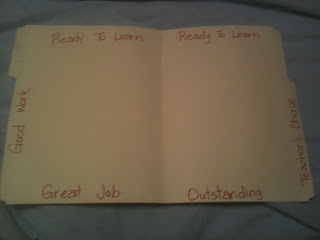 Ready To Learn
Ready To Learn
Good Work
Teacher's Choice
Great Job
Outstanding